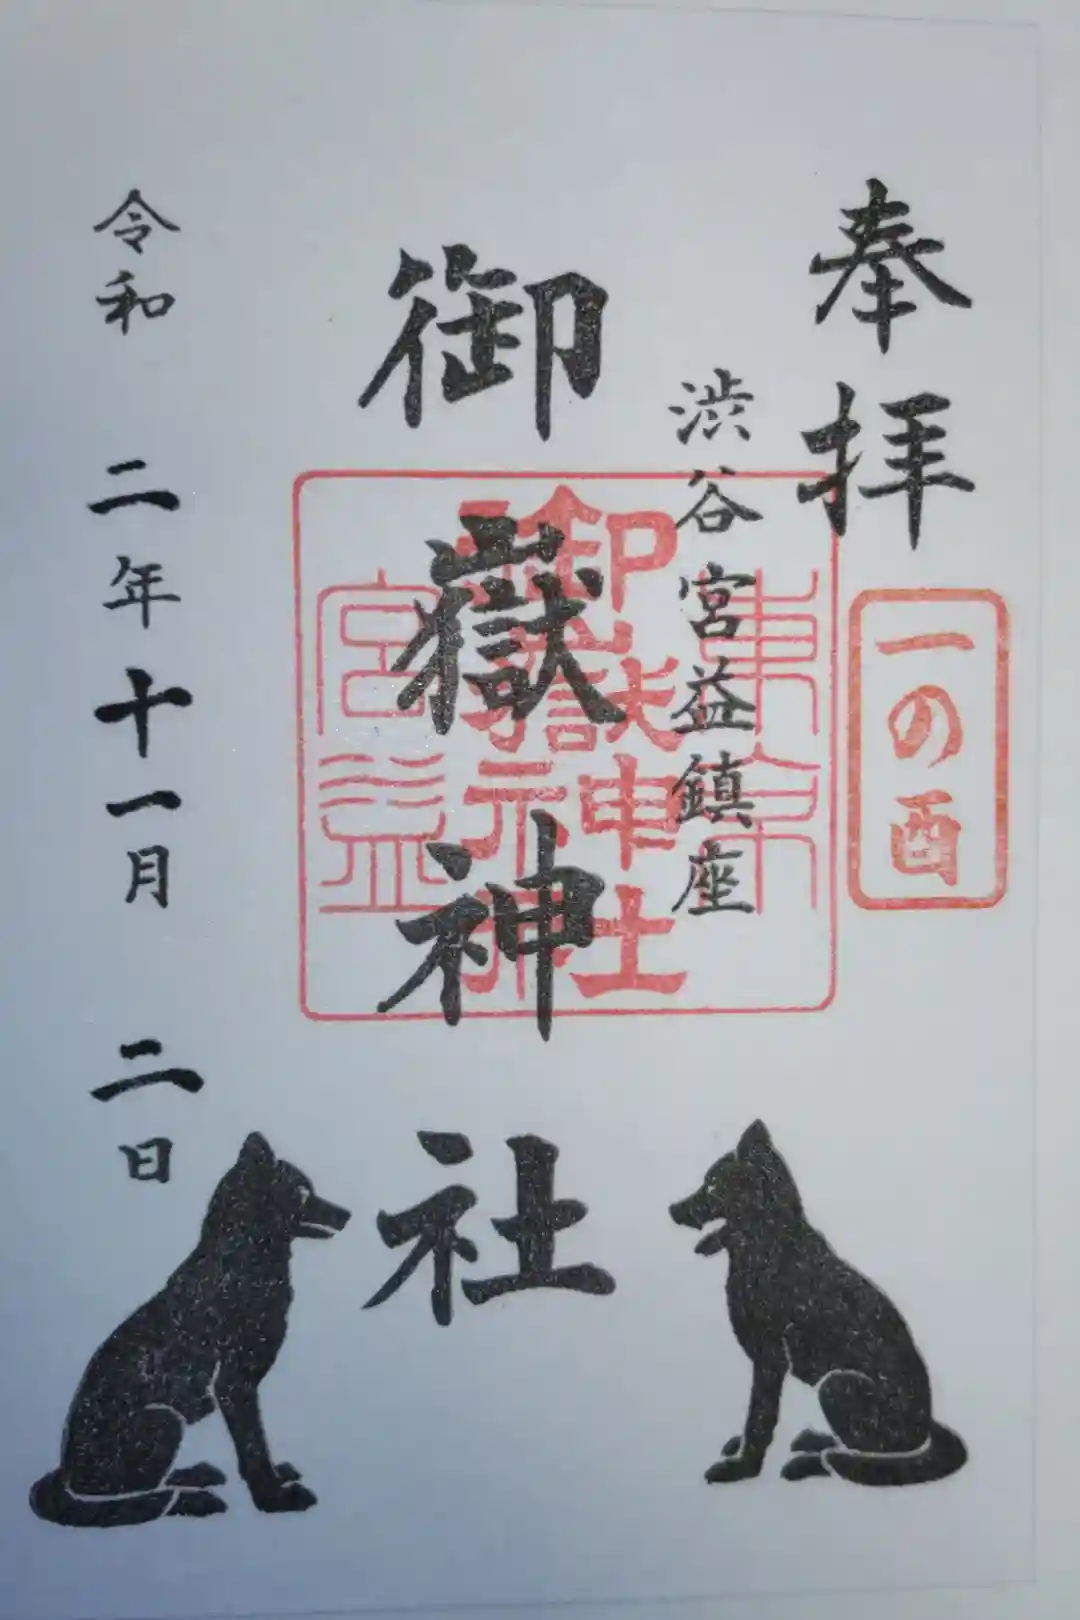 奉拝
一の酉
渋谷宮益鎮座
御嶽神社
東京
御嶽神社
宮益
令和二年十一月二日